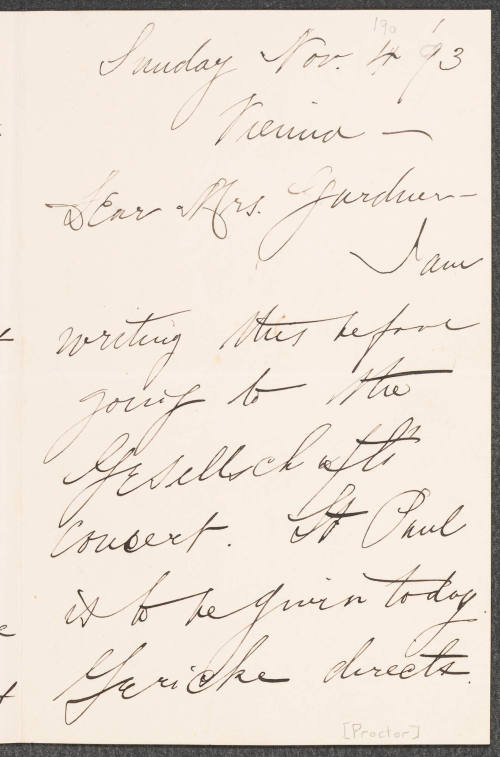 190
Sunday Nov. 4 '93
Vienna —
Dear Mrs. Gardner —
I am
writing this before
going to the
Gesellschafts
concert. St Paul
is to be given today
Gericke directs.
[Proctor]